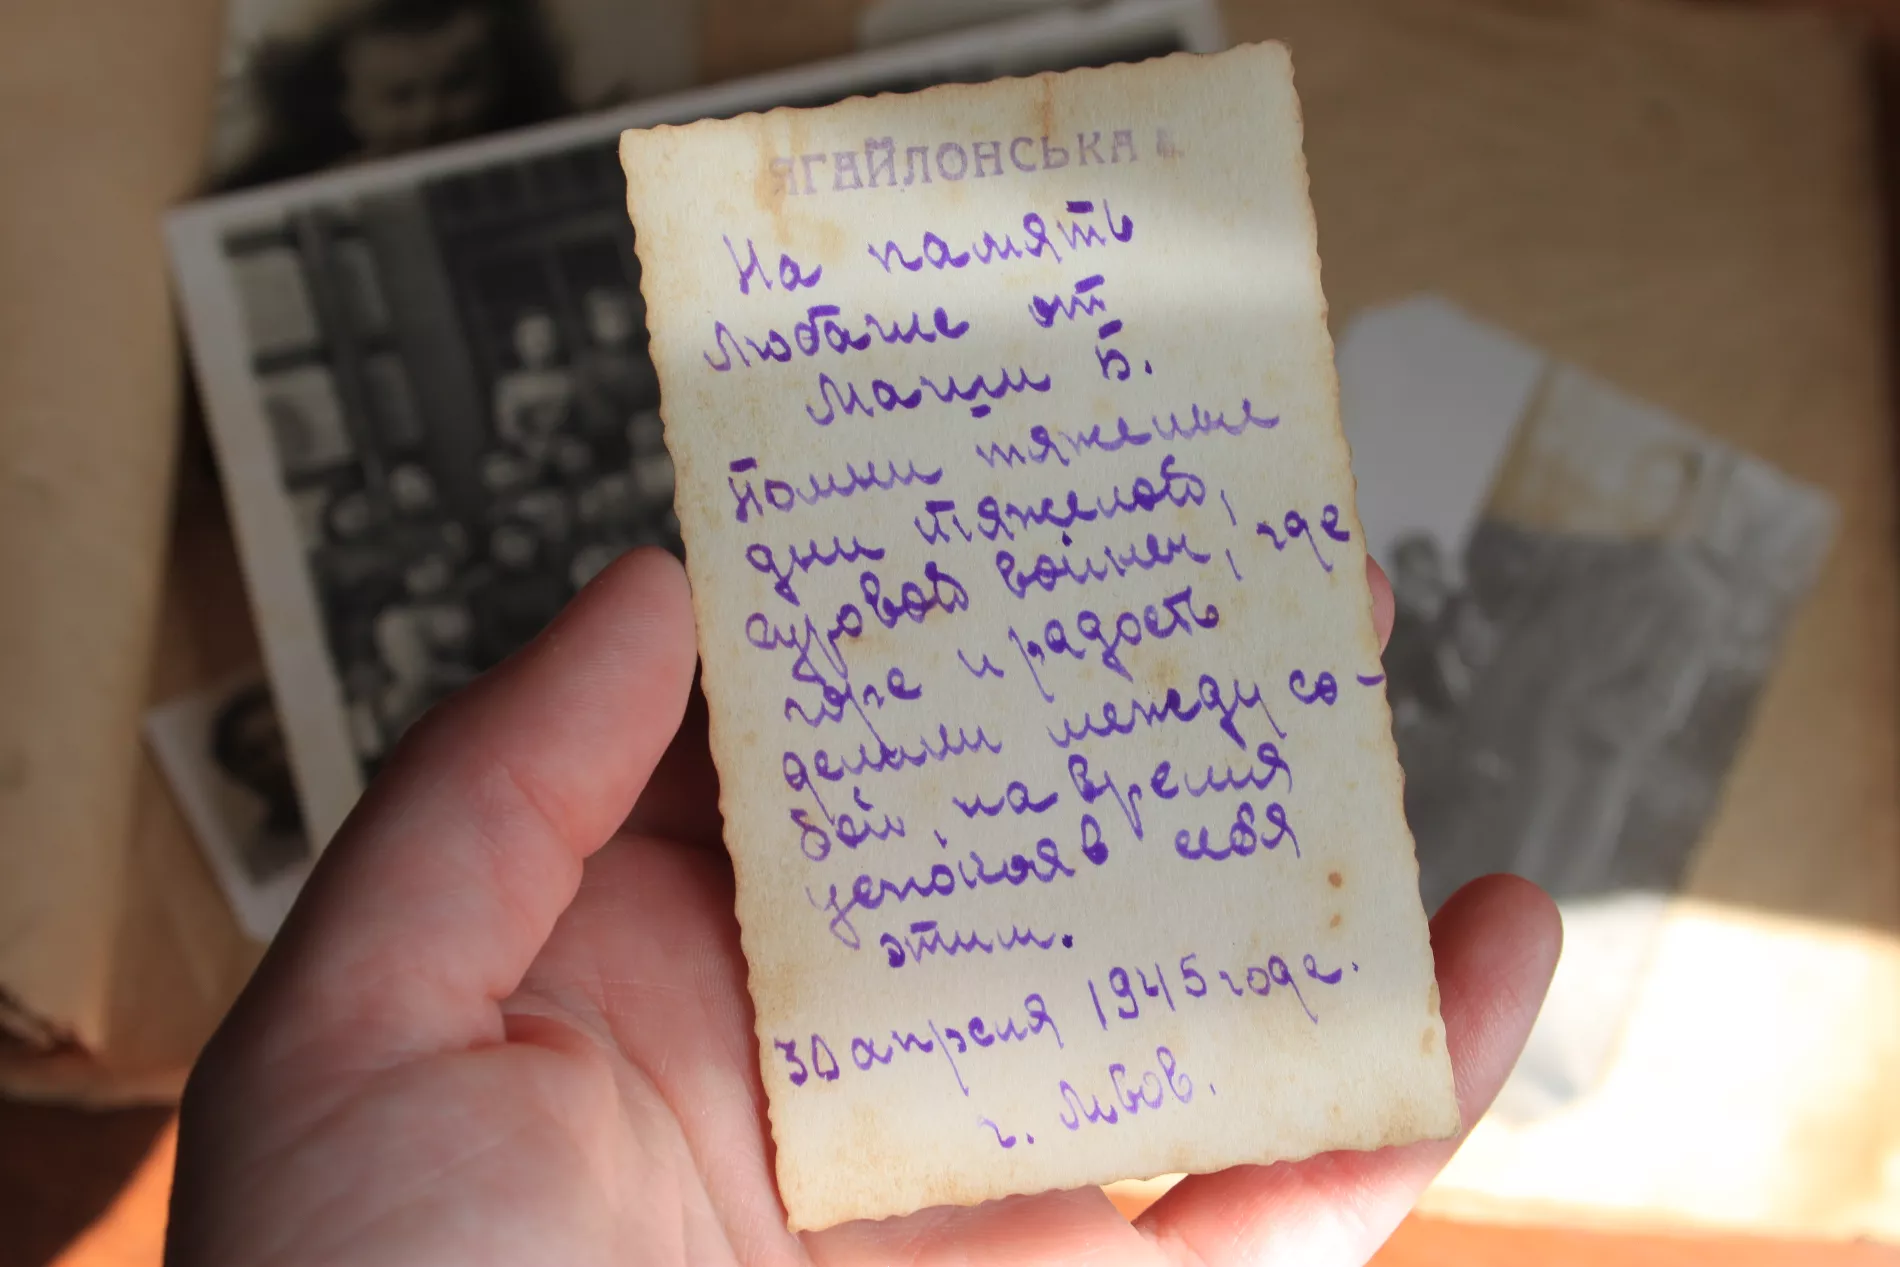 ЯГАЙЛОНСЬКА
На память
Любаше от
Маши Б.
Помни тяжелые
дни тяжелой,
суровой войны, где
горе и радость
делили между со-
бой, на время
успокояв себя
этим.
30 апреля 1945 года.
г. Львов.